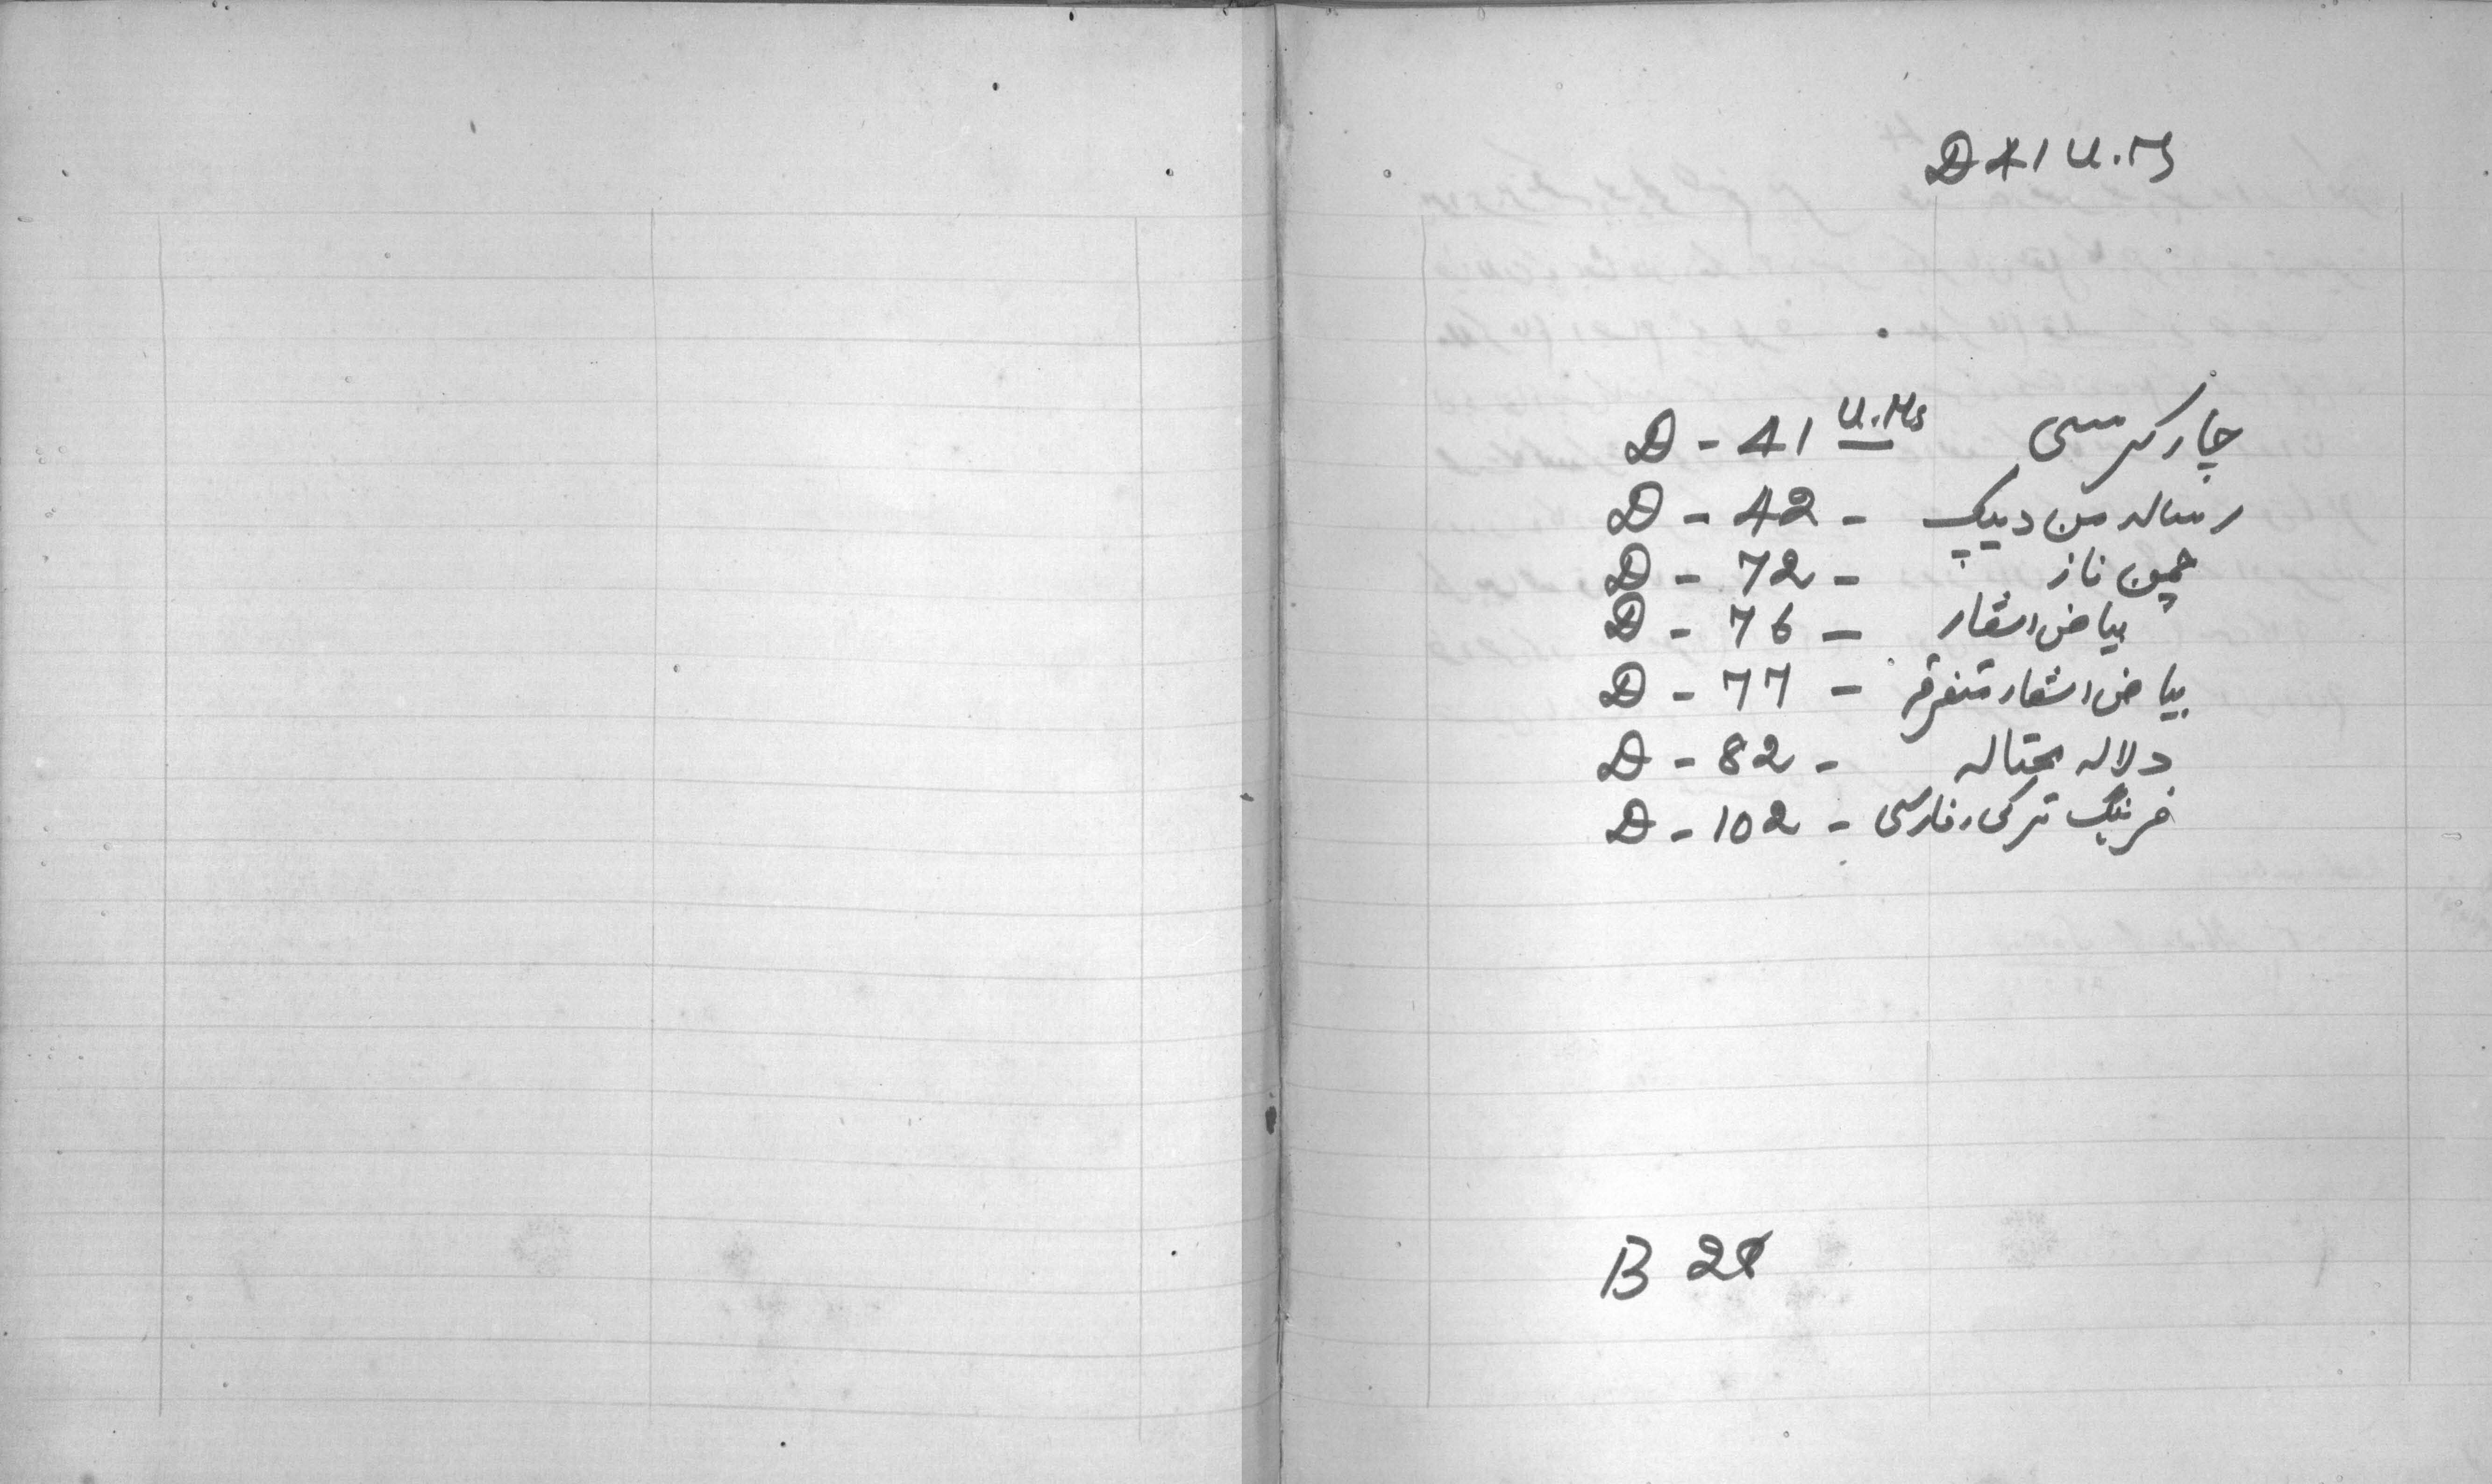 D 41 U.Ms
چار کرسی D - 41 U.Ms
رسالہ من دیپک - D - 42
چمن ناز - D - 72
بیاض اشعار - D - 76
بیاض اشعار متفرقہ - D - 77
دلالہ محتالہ - D - 82
فرہنگ ترکی، فارسی - D - 102
B 28